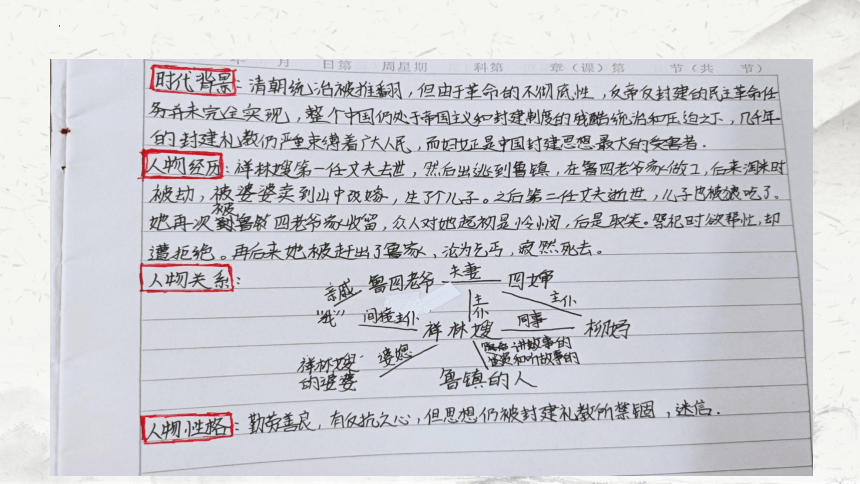 年 月 日第 周星期 科第 章（课）第 节（共 节）
时代背景：清朝统治被推翻，但由于革命的不彻底性，反帝反封建的民主革命任
务并未完全实现，整个中国仍处于帝国主义和封建制度的残酷统治和压迫之下，几千年
的封建礼教仍严重束缚着广大人民，而妇女正是中国封建思想最大的受害者.
人物经历：祥林嫂第一任丈夫去世，然后出逃到鲁镇，在鲁四老爷家做工，后来淘米时
被劫，被婆婆卖到山中改嫁，生了个儿子。之后第二任丈夫逝世，儿子也被狼吃了。
她再次被鲁镇四老爷家收留，众人对她起初是怜悯，后是取笑。祭祀时欲帮忙，却
遭拒绝。再后来她被赶出了鲁家、沦为乞丐，寂然死去。
人物关系：
亲戚 鲁四老爷 夫妻 四婶
"我" 间接主仆 主仆 主仆
祥林嫂 同事 柳妈
祥林嫂的婆婆 婆媳 讲故事的和听故事的
鲁镇的人
人物性格：勤劳善良，有反抗之心，但思想仍被封建礼教所禁锢，迷信.